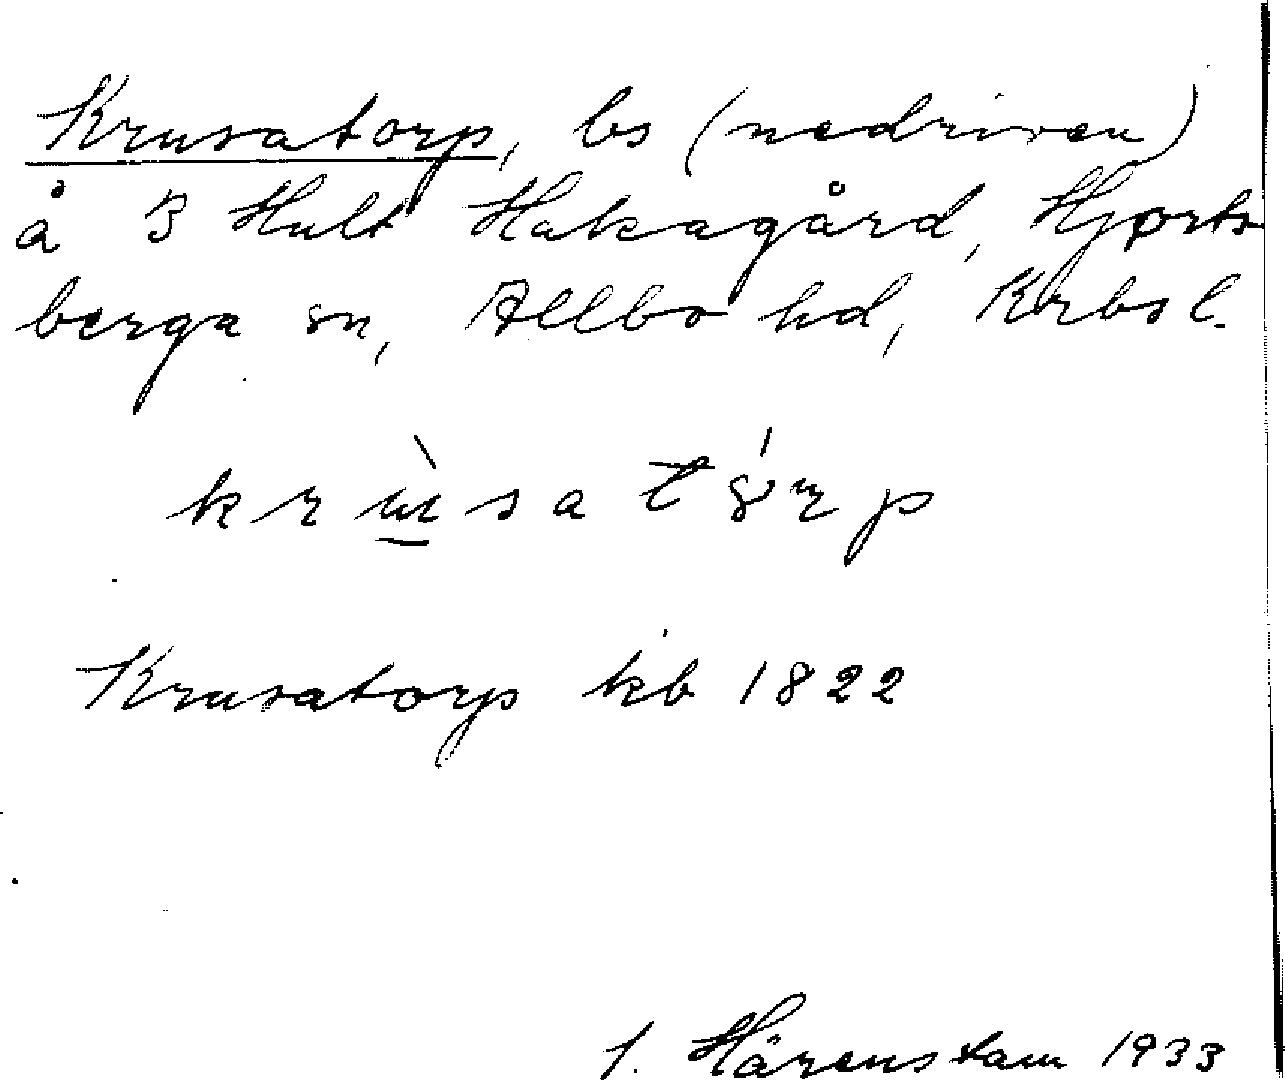 Krusatorp, bs (nedriven)
å 3 Hult Hakagård, Hjorts-
berga sn, Allbo hd, Krbs l.
Krusatorp kb 1822
I. Härenstam 1933